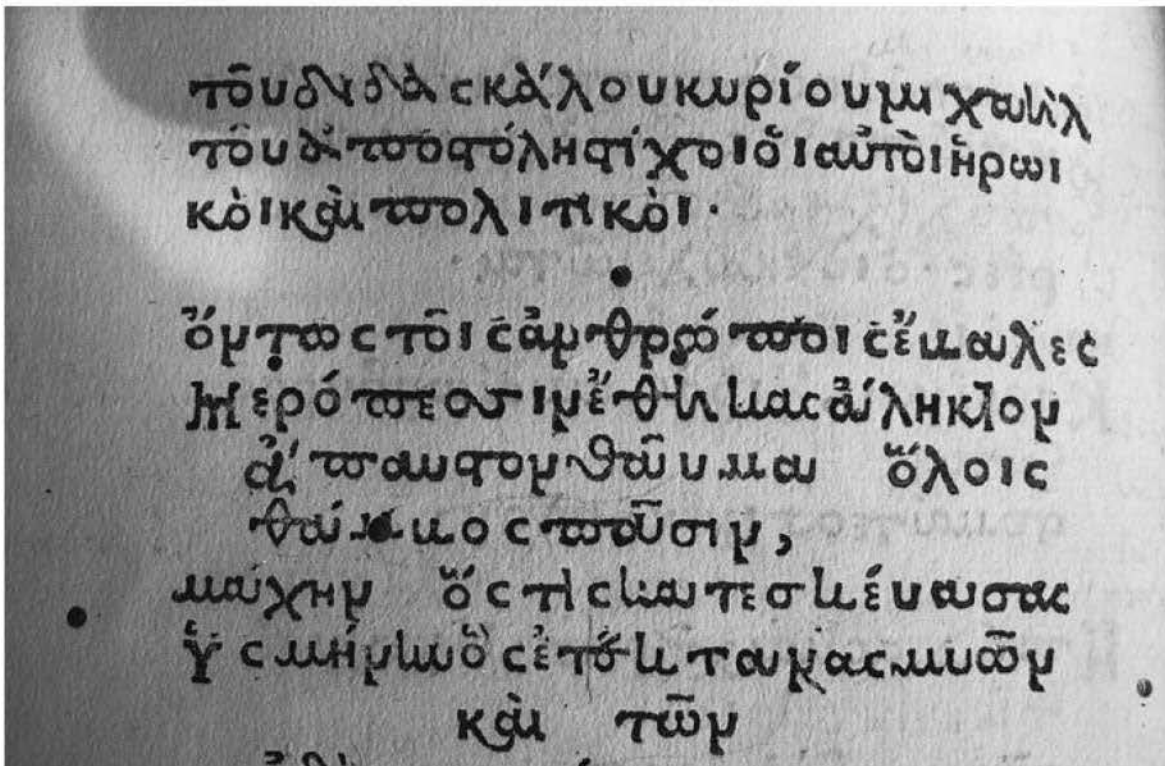 τοῦ διδασκάλου κυρίου μιχαὴλ
τοῦ ἀποστόλη στίχοι οἱ αὐτοὶ ἡρωι
κοὶ καὶ πολιτικοὶ·
ὄντως τοῖς ἀνθρώποις ἔβαλες
Μερόπεσσιν ἔθηκας ἄληκτον
ἄπαυστον θαῦμα ὅλοις
θάμβος πᾶσιν,
μάχην ὅστις κατεσκεύασας
μυῶν
καὶ τῶν